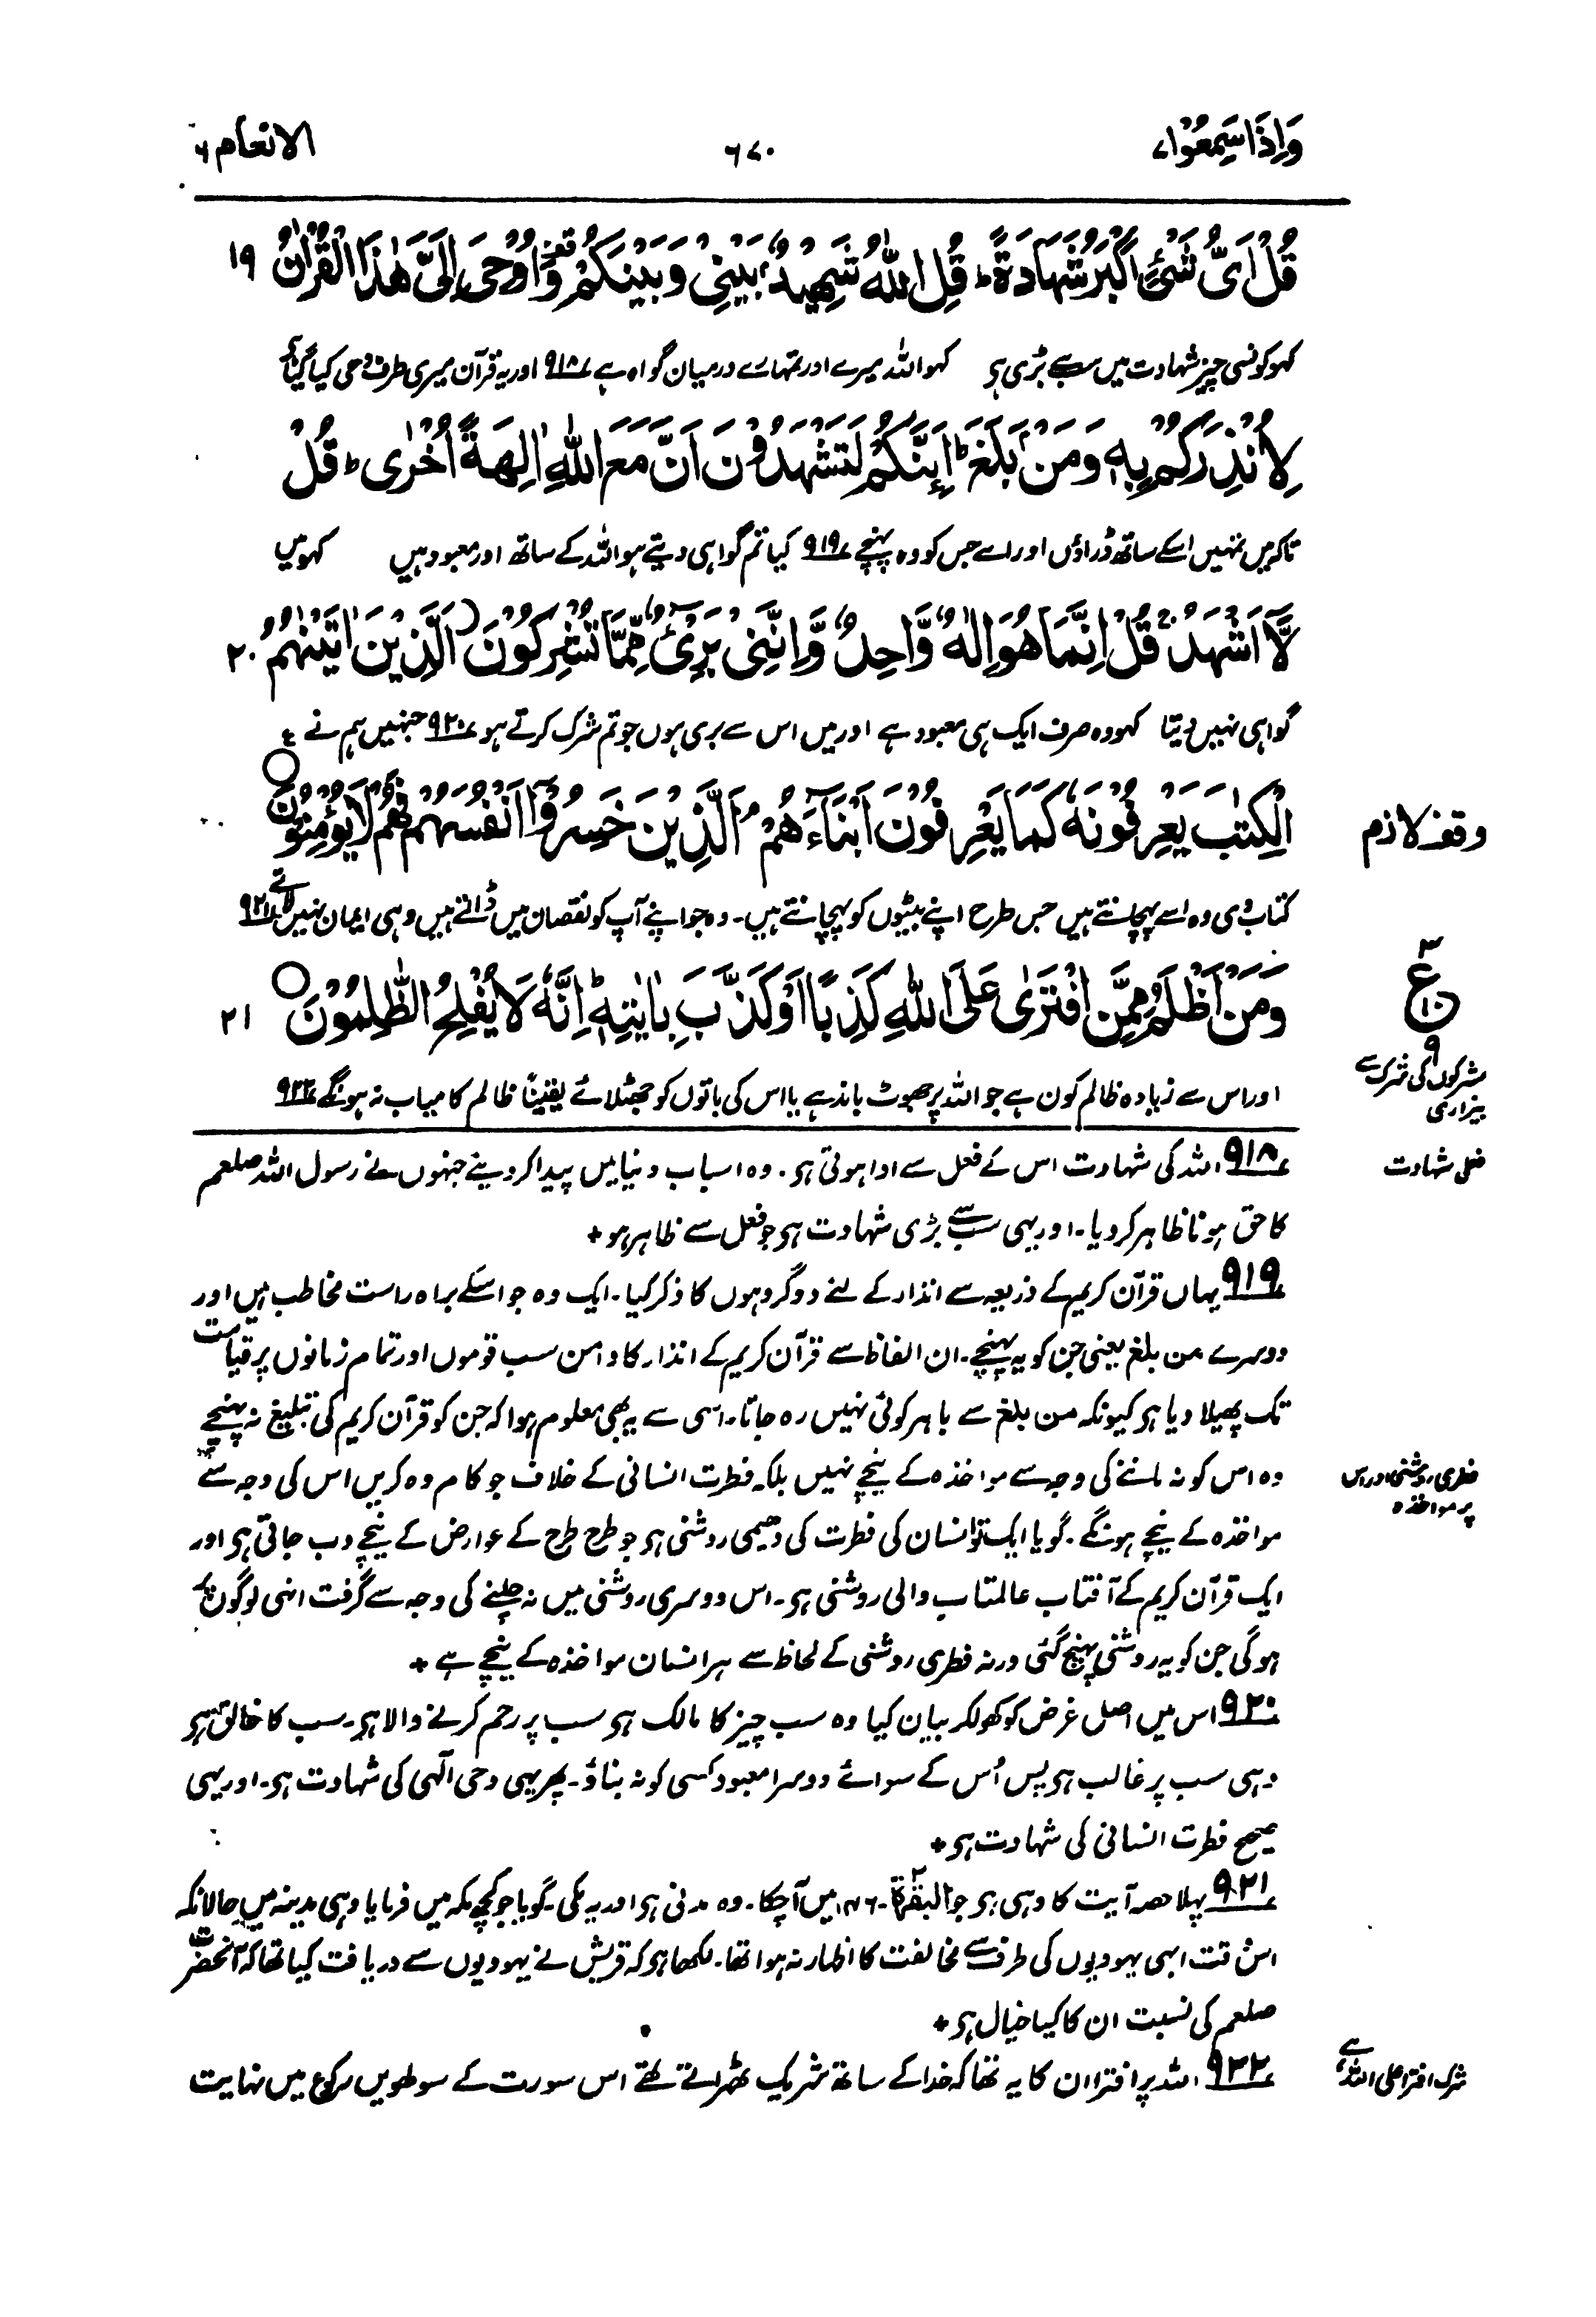 وَاِذَا سَمِعُوْا ۷
۶۷۰
الانعام ۶
قُلْ اَيُّ شَيْءٍ اَكْبَرُ شَهَادَةً ؕ قُلِ اللّٰهُ شَهِيْدٌۢ بَيْنِيْ وَبَيْنَكُمْ ࣞ وَاُوْحِيَ اِلَيَّ هٰذَا الْقُرْاٰنُ ۱۹
کہو کونسی چیز شہادت میں سب سے بڑی ہی کہو اللہ میرے اور تمہارے درمیان گواہ ہے ۹۱۸ اور یہ قرآن میری طرف وحی کیا گیا ہے
لِاُنْذِرَكُمْ بِهٖ وَمَنْۢ بَلَغَ ؕ اَئِنَّكُمْ لَتَشْهَدُوْنَ اَنَّ مَعَ اللّٰهِ اٰلِهَةً اُخْرٰى ؕ قُلْ
تاکہ میں تمہیں اسکے ساتھ ڈراؤں اور اسے جس کو وہ پہنچے ۹۱۹ کیا تم گواہی دیتے ہو اللہ کے ساتھ اور معبود ہیں کہو میں
لَّاۤ اَشْهَدُ ۚ قُلْ اِنَّمَا هُوَ اِلٰهٌ وَّاحِدٌ وَّاِنَّنِيْ بَرِيْٓءٌ مِّمَّا تُشْرِكُوْنَ ۘ اَلَّذِيْنَ اٰتَيْنٰهُمُ ۲۰
گواہی نہیں دیتا کہو وہ صرف ایک ہی معبود ہے اور میں اس سے بری ہوں جو تم شرک کرتے ہو ۹۲۰ جنہیں ہم نے
الْكِتٰبَ يَعْرِفُوْنَهٗ كَمَا يَعْرِفُوْنَ اَبْنَآءَهُمْ ۘ اَلَّذِيْنَ خَسِرُوْۤا اَنْفُسَهُمْ فَهُمْ لَا يُؤْمِنُوْنَ ○
وقف لازم
کتاب دی وہ اسے پہچانتے ہیں جس طرح اپنے بیٹوں کو پہچانتے ہیں۔ وہ جو اپنے آپ کو نقصان میں ڈالتے ہیں وہی ایمان نہیں لاتے ۹۲۱
۳ ع ۱۰ ۹
وَمَنْ اَظْلَمُ مِمَّنِ افْتَرٰى عَلَى اللّٰهِ كَذِبًا اَوْ كَذَّبَ بِاٰيٰتِهٖ ؕ اِنَّهٗ لَا يُفْلِحُ الظّٰلِمُوْنَ ○ ۲۱
مشرکوں کی شرک سے
بیزاری
اور اس سے زیادہ ظالم کون ہے جو اللہ پر جھوٹ باندھے یا اس کی باتوں کو جھٹلائے یقیناً ظالم کامیاب نہ ہونگے ۹۲۲
فعلی شہادت
۹۱۸ اللہ کی شہادت اس کے فعل سے ادا ہوتی ہی۔ وہ اسباب دنیا میں پیدا کر دیئے جنہوں نے رسول اللہ صلعم
کا حق ہونا ظاہر کر دیا۔ اور یہی سب سے بڑی شہادت ہی جو فعل سے ظاہر ہو +
۹۱۹ یہاں قرآن کریم کے ذریعہ سے انذار کے لئے دو گروہوں کا ذکر کیا۔ ایک وہ جو اسکے براہ راست مخاطب ہیں اور
دوسرے من بلغ یعنی جن کو یہ پہنچے۔ ان الفاظ سے قرآن کریم کے انذار کا دامن سب قوموں اور تمام زمانوں پر قیامت
تک پھیلا دیا ہی کیونکہ من بلغ سے باہر کوئی نہیں رہ جاتا۔ اسی سے یہ بھی معلوم ہوا کہ جن کو قرآن کریم کی تبلیغ نہ پہنچے
وہ اس کو نہ ماننے کی وجہ سے مواخذہ کے نیچے نہیں بلکہ فطرت انسانی کے خلاف جو کام وہ کریں اس کی وجہ سے
فطری روشنی اور اس
پر مواخذہ
مواخذہ کے نیچے ہونگے۔ گویا ایک تو انسان کی فطرت کی دھیمی روشنی ہی جو طرح طرح کے عوارض کے نیچے دب جاتی ہی اور
ایک قرآن کریم کے آفتاب عالمتاب والی روشنی ہی۔ اس دوسری روشنی میں نہ چلنے کی وجہ سے گرفت انہی لوگوں پر
ہوگی جن کو یہ روشنی پہنچ گئی ورنہ فطری روشنی کے لحاظ سے ہر انسان مواخذہ کے نیچے ہے +
۹۲۰ اس میں اصل غرض کو کھولکر بیان کیا وہ سب چیز کا مالک ہی سب پر رحم کرنے والا ہی۔ سب کا خالق ہی
وہی سب پر غالب ہی پس اُس کے سوائے دوسرا معبود کسی کو نہ بناؤ۔ پھر یہی وحی الٰہی کی شہادت ہی۔ اور یہی
صحیح فطرت انسانی کی شہادت ہی +
۹۲۱ پہلا حصہ آیت کا وہی ہی جو البقرۃ ۲۔۱۴۶ میں آچکا۔ وہ مدنی ہی اور یہ مکی۔ گویا جو کچھ مکہ میں فرمایا وہی مدینہ میں حالانکہ
اس وقت ابھی یہودیوں کی طرف سے مخالفت کا اظہار نہ ہوا تھا۔ لکھا ہی کہ قریش نے یہودیوں سے دریافت کیا تھا کہ آنحضرت
صلعم کی نسبت ان کا کیا خیال ہی +
۹۲۲ اللہ پر افترا ان کا یہ تھا کہ خدا کے ساتھ شریک ٹھہراتے تھے اس سورت کے سولھویں رکوع میں نہایت
شرک افترا علی اللہ ہے